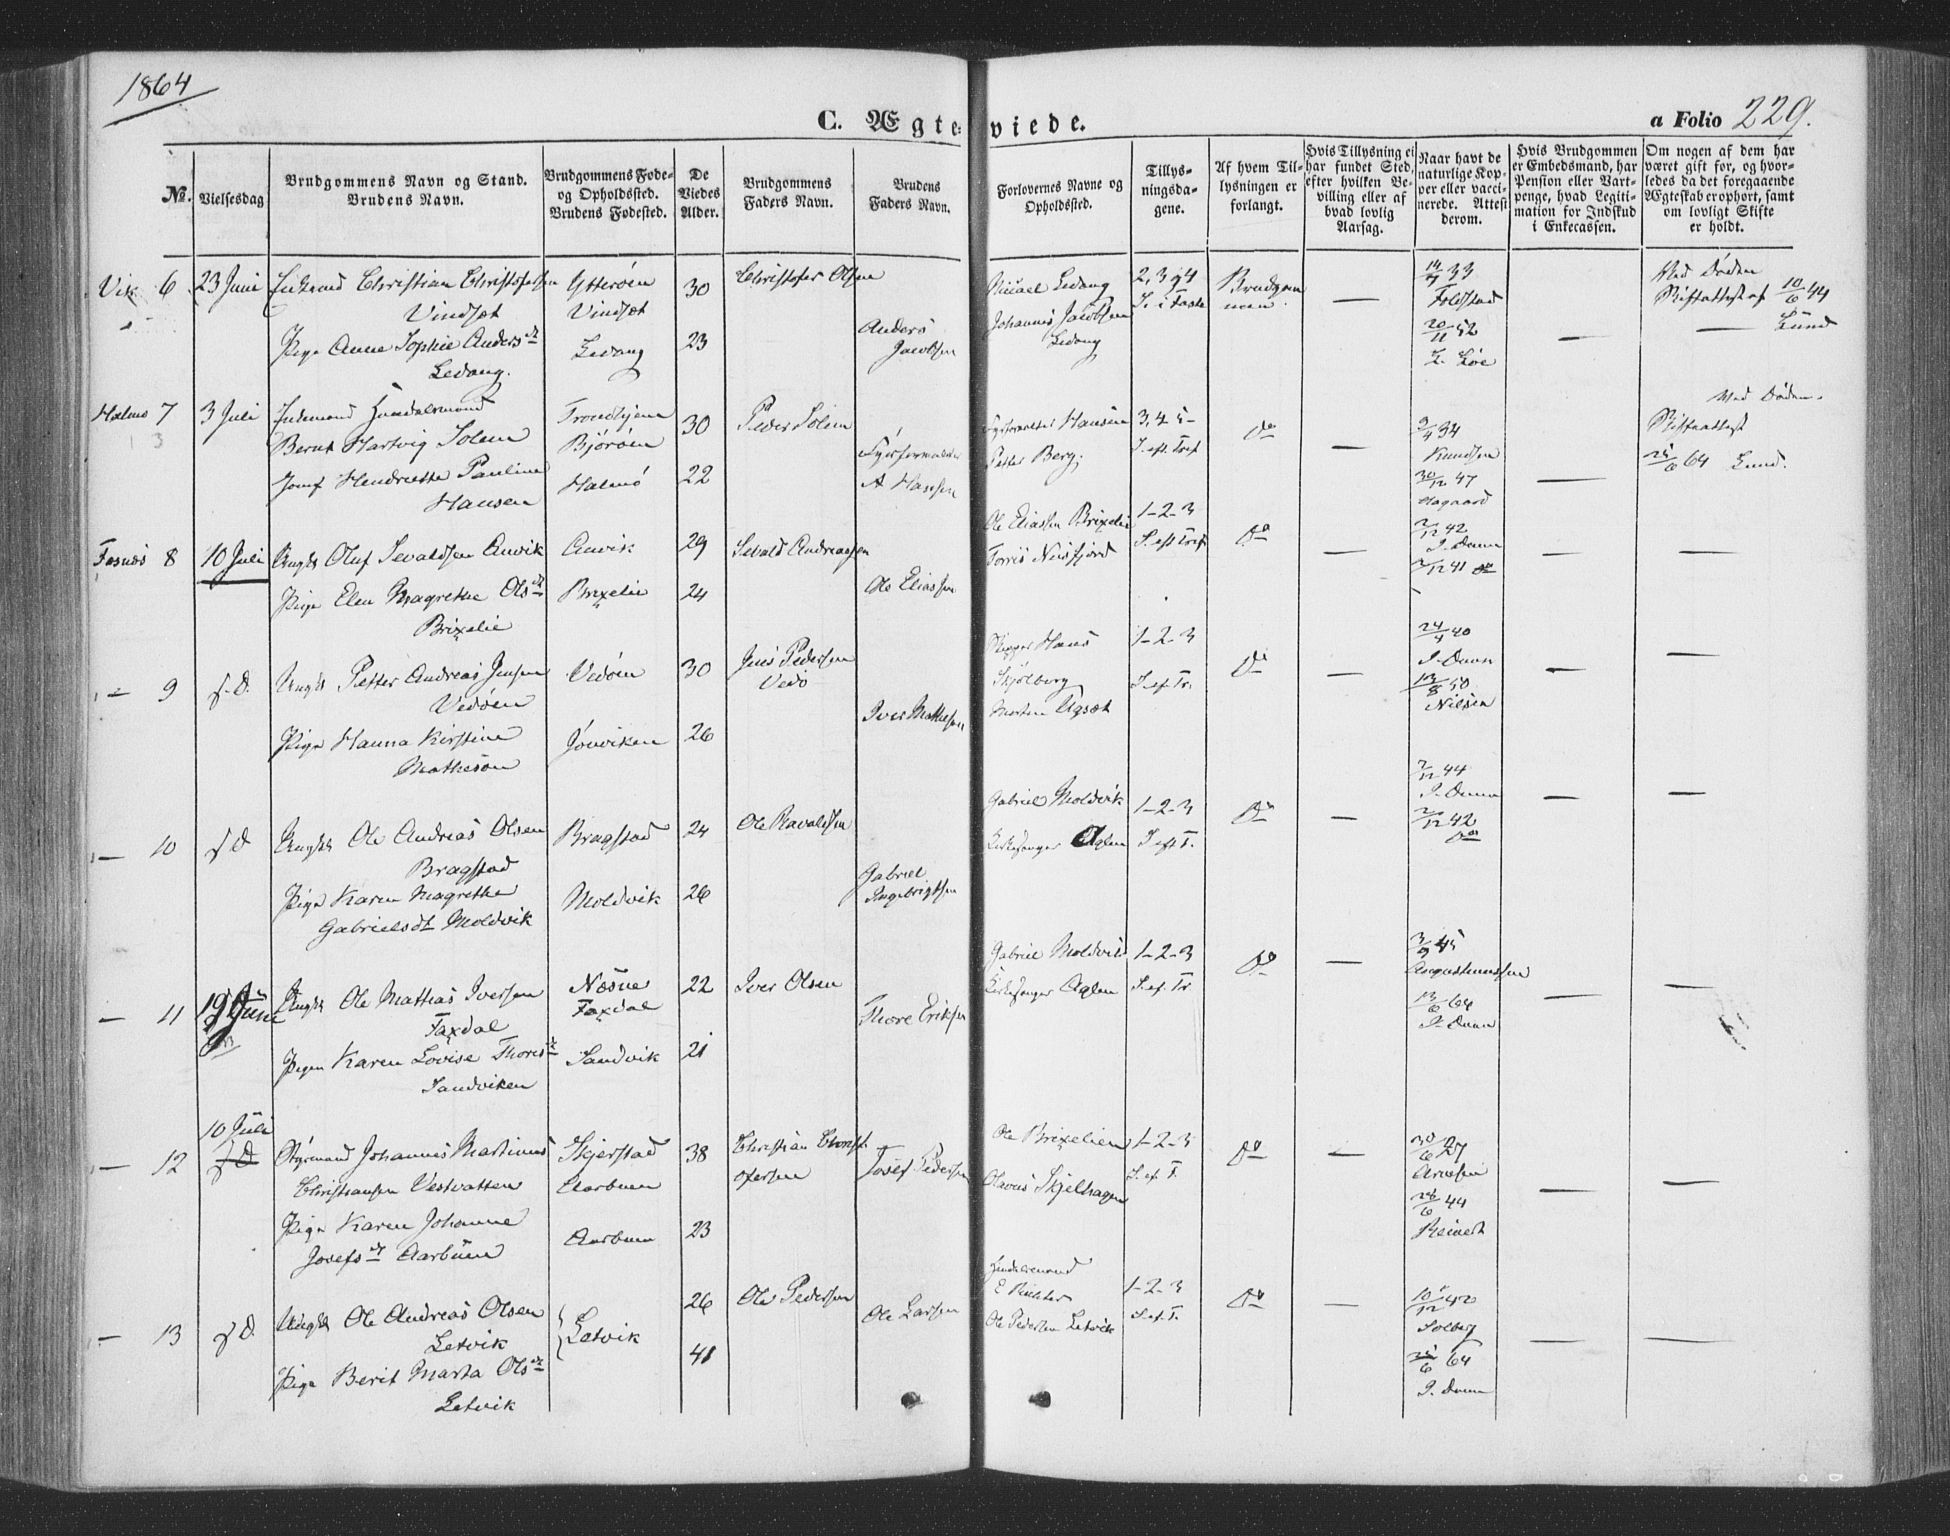 1864
C. Ægteviede.
a Folio 229.
No.
Vielsesdag
Brudgommens Navn og Stand.
Brudens Navn.
Brudgommens Føde-
og Opholdssted.
Brudens Fødested.
De
Viedes
Alder.
Brudgommens
Faders Navn.
Brudens
Faders Navn.
Forlovernes Navne og
Opholdssted.
Tillys-
ningsda-
gene.
Af hvem Til-
lysningen er
forlangt.
Hvis Tillysning ei
har fundet Sted,
efter hvilken Be-
villing eller af
hvad lovlig
Aarsag.
Naar havt de
naturlige Kop-
per eller vacci-
nerede. Attest
derom.
Hvis Brudgommen
er Embedsmand, har
Pension eller Vart-
penge, hvad Legiti-
mation for Indskud
i Enkecassen.
Om nogen af dem har
været gift før, og hvor-
ledes da det foregaaende
Ægteskab er ophørt, samt
om lovligt Skifte
er holdt.
Vik 6 23 Juni Enkemand Christian Christofersen
Vindsæt
Pige Anne Sophie Andersdt
Ledang.
Ytterøen
Vindsæt
Ledang
30
23
Christofer Olsen
Anders
Jacobsen
Ledang
Johannes Jacobsen
Ledang
2, 3 g 4
S. i Faste
Brudgom
men.
—
14/7 33
20/11 52
—
Ved Døden
Skifteattest af 10/6 44
— Lund
7 3 Juli Enkemand Handelsmand
Bernt Hartvig Solem
Jomf Hendriette Pauline
Hansen
Trondhjem
Bjørøen
Halmø
30
22
Peder Solem
A Hansen
Hansen
Petter Berg.
3, 4, 5-
S. eft Tref
Do
—
9/4 34
Knudsen
30/12 47
Aagaard
—
Ved Døden.
Skifteattest
25/6 64 Lund.
Fosnæs 8 10 Juli Ungk Oluf Sevaldsen Anvik
Pige Elen Magrethe Olsdt
Brixelie
Anvik
Brixelie
29
24
Sevald Andreassen
Ole Eliassen
Ole Eliassen Brixelie
Torris Neisfjord
1-2-3
S. eft Tref
Do
—
2/12 42
J. Daun
2/12 41 do
—
—
— 9 s. D. Ungk Petter Andreas Jensen
Vedøen
Pige Hanna Kirstine
Mathesøn
Vedøen
Jønviken
30
26
Jens Pedersen
Vedø
Iver Mathesen
Skipper Hans
Skjølberg
Morten Agsæt
1-2-3
S. ef. Tr.
Do
—
24/4 40
J. Daun
13/8 50
Nilsen
—
—
— 10 s D Ungk Ole Andreas Olsen
Bragstad
Pige Karen Magrethe
Gabrielsdt Moldvik
Bragstad
Moldvik
24
26
Ole Ravaldsen
Gabriel
Ingebrigtsen
Gabriel Moldvik
Kirkesanger Aglen
1-2-3
S eft T.
Do
—
2/12 44
J. Daun
2/12 42
Do
—
—
— 11 19 Juni
Ungk Ole Mathias Iversen
Faxdal
Pigen Karen Lovise Thoresdt
Sandviken
Næsne
Faxdal
Sandvik
22
21
Iver Olsen
Thore Eriksen
Gabriel Moldvik
Kirkesanger Aglen
1-2-3
S. ef. Tr
Do
—
3/9 45
13/6 64
J. Daun
—
—
— 12 10 Juli
s D
Styrmand Johannes Martinus
Christiansen Vestvatten
Pige Karen Johanne
Josefsdt Aarbuen
Skjerstad
Aarbuen
Aarbuen
38
23
Christian Christ-
ofersen
Josef Pedersen
Ole Brixelien
Olavus Skjelhagen
1-2-3
S. ef. T.
Do
—
30/6 27
Arnesen
28/6 44
Reinert
—
—
— 13 s D. Ungk Ole Andreas Olsen
Letvik
Pige Berit Marta Olsdt
Letvik
Letvik
26
41
Ole Pedersen
Ole Larsen
Handelsmand
E Richter
Ole Pedersen Letvik
1-2-3
S. ef. T.
Do
—
10/12 42
Solberg
25/6 64
J. Daun
—
—